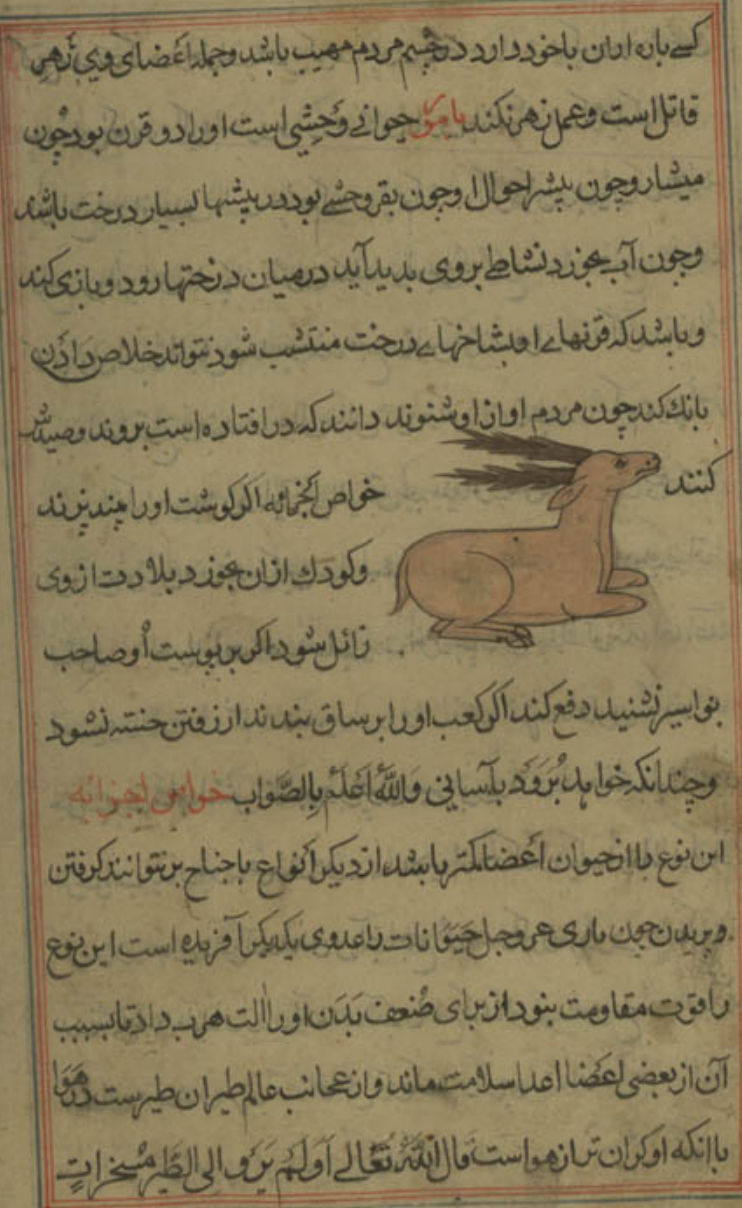 کسے باره ازان باخود دارد در چشم مردم مهیب باشد وجمله اعضای وی زهر
قاتل است وعمل زهر نکند یامور حیوانے وحشی است اورا دو قرن بود چون
میشار وچون بیشتر احوال او چون بقر وحشے بود در بیشها بسیار درخت باشد
وچون آب بخورد نشاطے بروی بدید آید درمیان درختها رود وبازی کند
وباشد که قرنهاے او بشاخهاے درخت منتشب شود نتواند خلاص دادن
بانك کند چون مردم اواز او شنوند دانند که درافتاده است بروند وصیدش
کنند
خواص اجزائه اکر کوشت اورا بپزند
وکودك ازان بخورد بلادت ازوی
زائل شود اکر بر پوست او صاحب
بواسیر نشیند دفع کند اکر کعب اورا بر ساق بندند از رفتن خسته نشود
وچندانکه خواهد برود بآسانی وَاللّٰهُ اَعْلَمُ بِالصَّوَابِ خواص اجزائه
این نوع را از حیوان اعضا کمتر باشد از دیکر انواع با جناح بر نتوانند کرفتن
وپریدن چون باری عز وجل حیوانات را عدوی یکدیکر آفریده است این نوع
را قوت مقاومت نبود از برای ضعف بدن اورا الت هرب داد تا بسبب
آن از بعضی اعدا سلامت ماند واز عجائب عالم طیران طیرست در هوا
باانکه او کران تر از هواست قال اللّٰه تَعَالے اَوَلَمْ یَرَوْا الی الطَّیْرِ مُسَخَّرَاتٍ